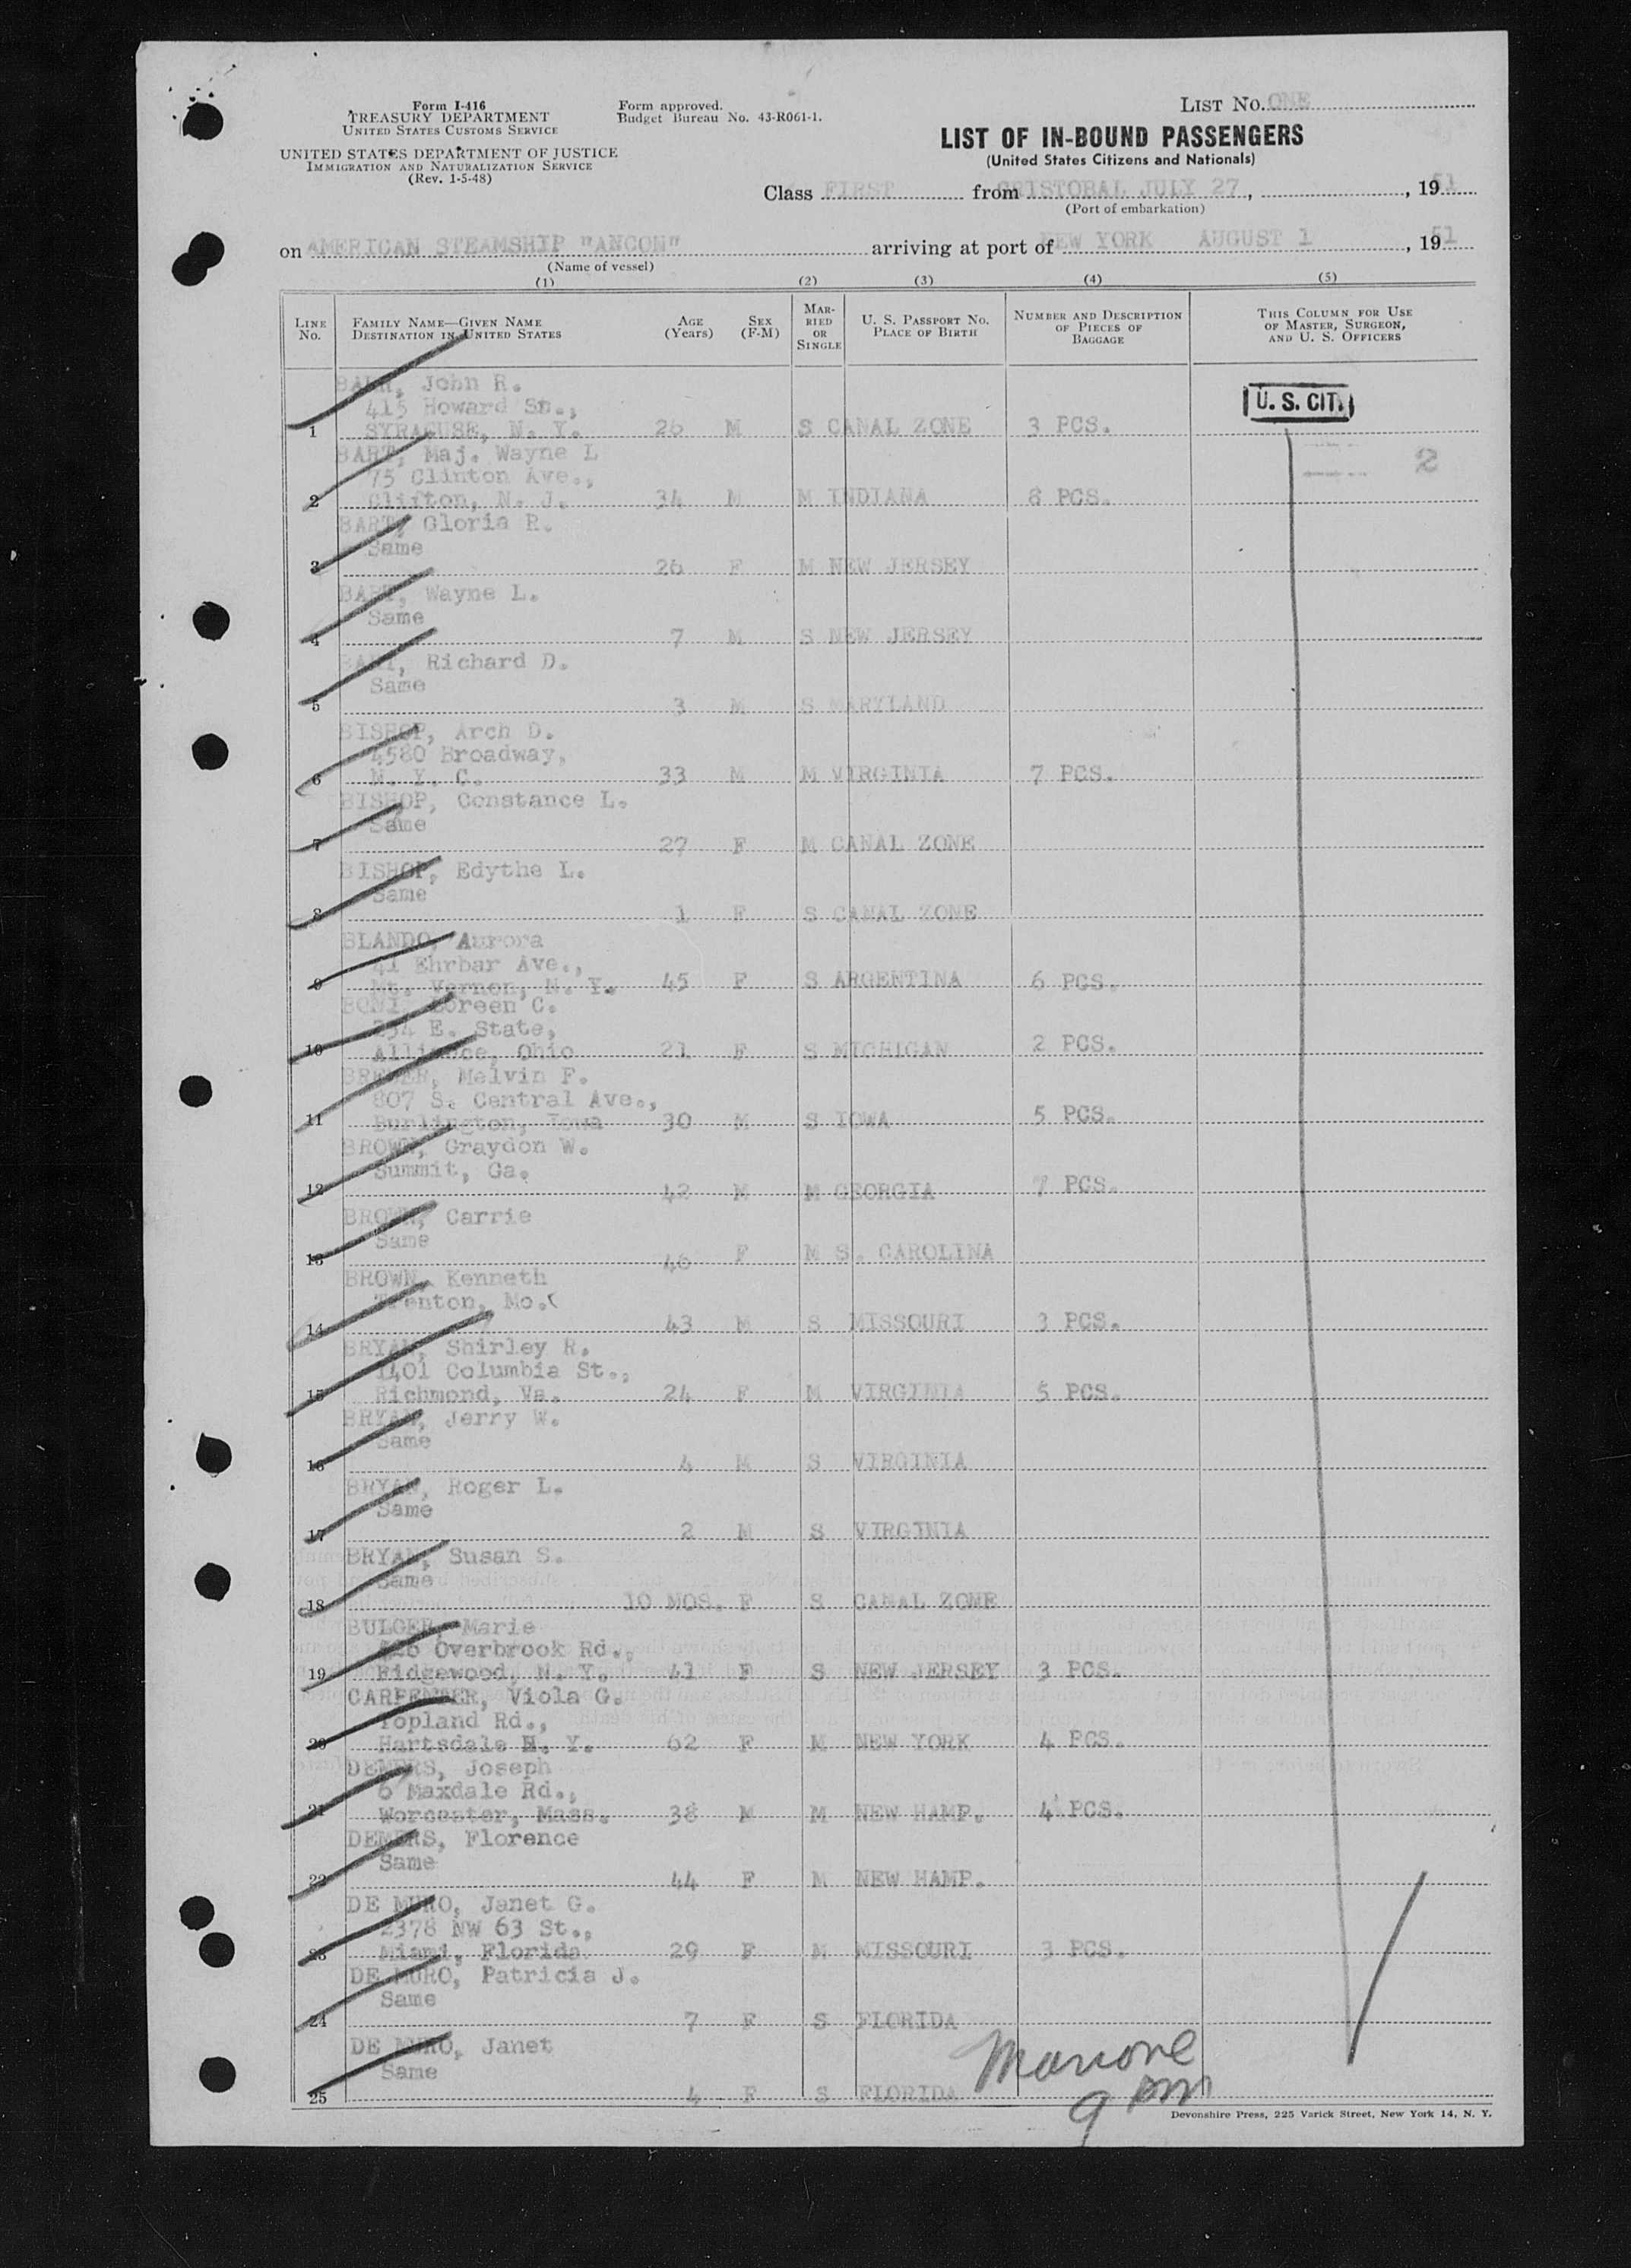 Form I-416
TREASURY DEPARTMENT
UNITED STATES CUSTOMS SERVICE
UNITED STATES DEPARTMENT OF JUSTICE
IMMIGRATION AND NATURALIZATION SERVICE
(Rev. 1-5-48)
Form approved.
Budget Bureau No. 43-R061-1.
LIST No. ONE
LIST OF IN-BOUND PASSENGERS
(United States Citizens and Nationals)
Class FIRST from CRISTOBAL JULY 27, , 19 51
(Port of embarkation)
on AMERICAN STEAMSHIP "ANCON" arriving at port of NEW YORK AUGUST 1 , 19 51
(Name of vessel)
(1) (2) (3) (4) (5)
LINE No. FAMILY NAME—GIVEN NAME DESTINATION IN UNITED STATES AGE (Years) SEX (F-M) MARRIED OR SINGLE U. S. PASSPORT No. PLACE OF BIRTH NUMBER AND DESCRIPTION OF PIECES OF BAGGAGE THIS COLUMN FOR USE OF MASTER, SURGEON, AND U. S. OFFICERS
John R.
415 Howard St.,
1 SYRACUSE, N. Y. 26 M S CANAL ZONE 3 PCS.
U. S. CIT.
BART, Maj. Wayne L
75 Clinton Ave.,
2 Clifton, N. J. 34 M M INDIANA 8 PCS.
2
BART, Gloria R.
Same
3 26 F M NEW JERSEY
BART, Wayne L.
Same
4 7 M S NEW JERSEY
BART, Richard D.
Same
5 3 M S MARYLAND
BISHOP, Arch D.
4580 Broadway,
6 N. Y. C. 33 M M VIRGINIA 7 PCS.
BISHOP, Constance L.
Same
7 27 F M CANAL ZONE
BISHOP, Edythe L.
Same
8 1 F S CANAL ZONE
BLANDO, Aurora
41 Ehrbar Ave.,
9 Mt. Vernon, N. Y. 45 F S ARGENTINA 6 PCS.
BONI, Loreen C.
E. State,
10 Alliance, Ohio 21 F S MICHIGAN 2 PCS.
Melvin F.
807 S. Central Ave.,
11 Burlington, Iowa 30 M S IOWA 5 PCS.
BROWN, Graydon W.
Summit, Ga.
12 42 M M GEORGIA 7 PCS.
BROWN, Carrie
Same
13 46 F M S. CAROLINA
BROWN, Kenneth
Trenton, Mo.
14 43 M S MISSOURI 3 PCS.
BRYAN, Shirley R.
1401 Columbia St.,
15 Richmond, Va. 24 F M VIRGINIA 5 PCS.
BRYAN, Jerry W.
Same
16 4 M S VIRGINIA
BRYAN, Roger L.
Same
17 2 M S VIRGINIA
BRYAN, Susan S.
Same
18 10 MOS. F S CANAL ZONE
BULGER, Marie
Overbrook Rd.,
19 Ridgewood, N. Y. 41 F S NEW JERSEY 3 PCS.
CARPENTER, Viola G.
Topland Rd.,
20 Hartsdale N. Y. 62 F M NEW YORK 4 PCS.
DEMERS, Joseph
6 Maxdale Rd.,
21 Worcester, Mass. 38 M M NEW HAMP. 4 PCS.
DEMERS, Florence
Same
22 44 F M NEW HAMP.
DE MURO, Janet G.
2378 NW 63 St.,
23 Miami, Florida 29 F M MISSOURI 3 PCS.
DE MURO, Patricia J.
Same
24 7 F S FLORIDA
DE MURO, Janet
Same
25 4 F S FLORIDA
9 pm
Devonshire Press, 225 Varick Street, New York 14, N. Y.